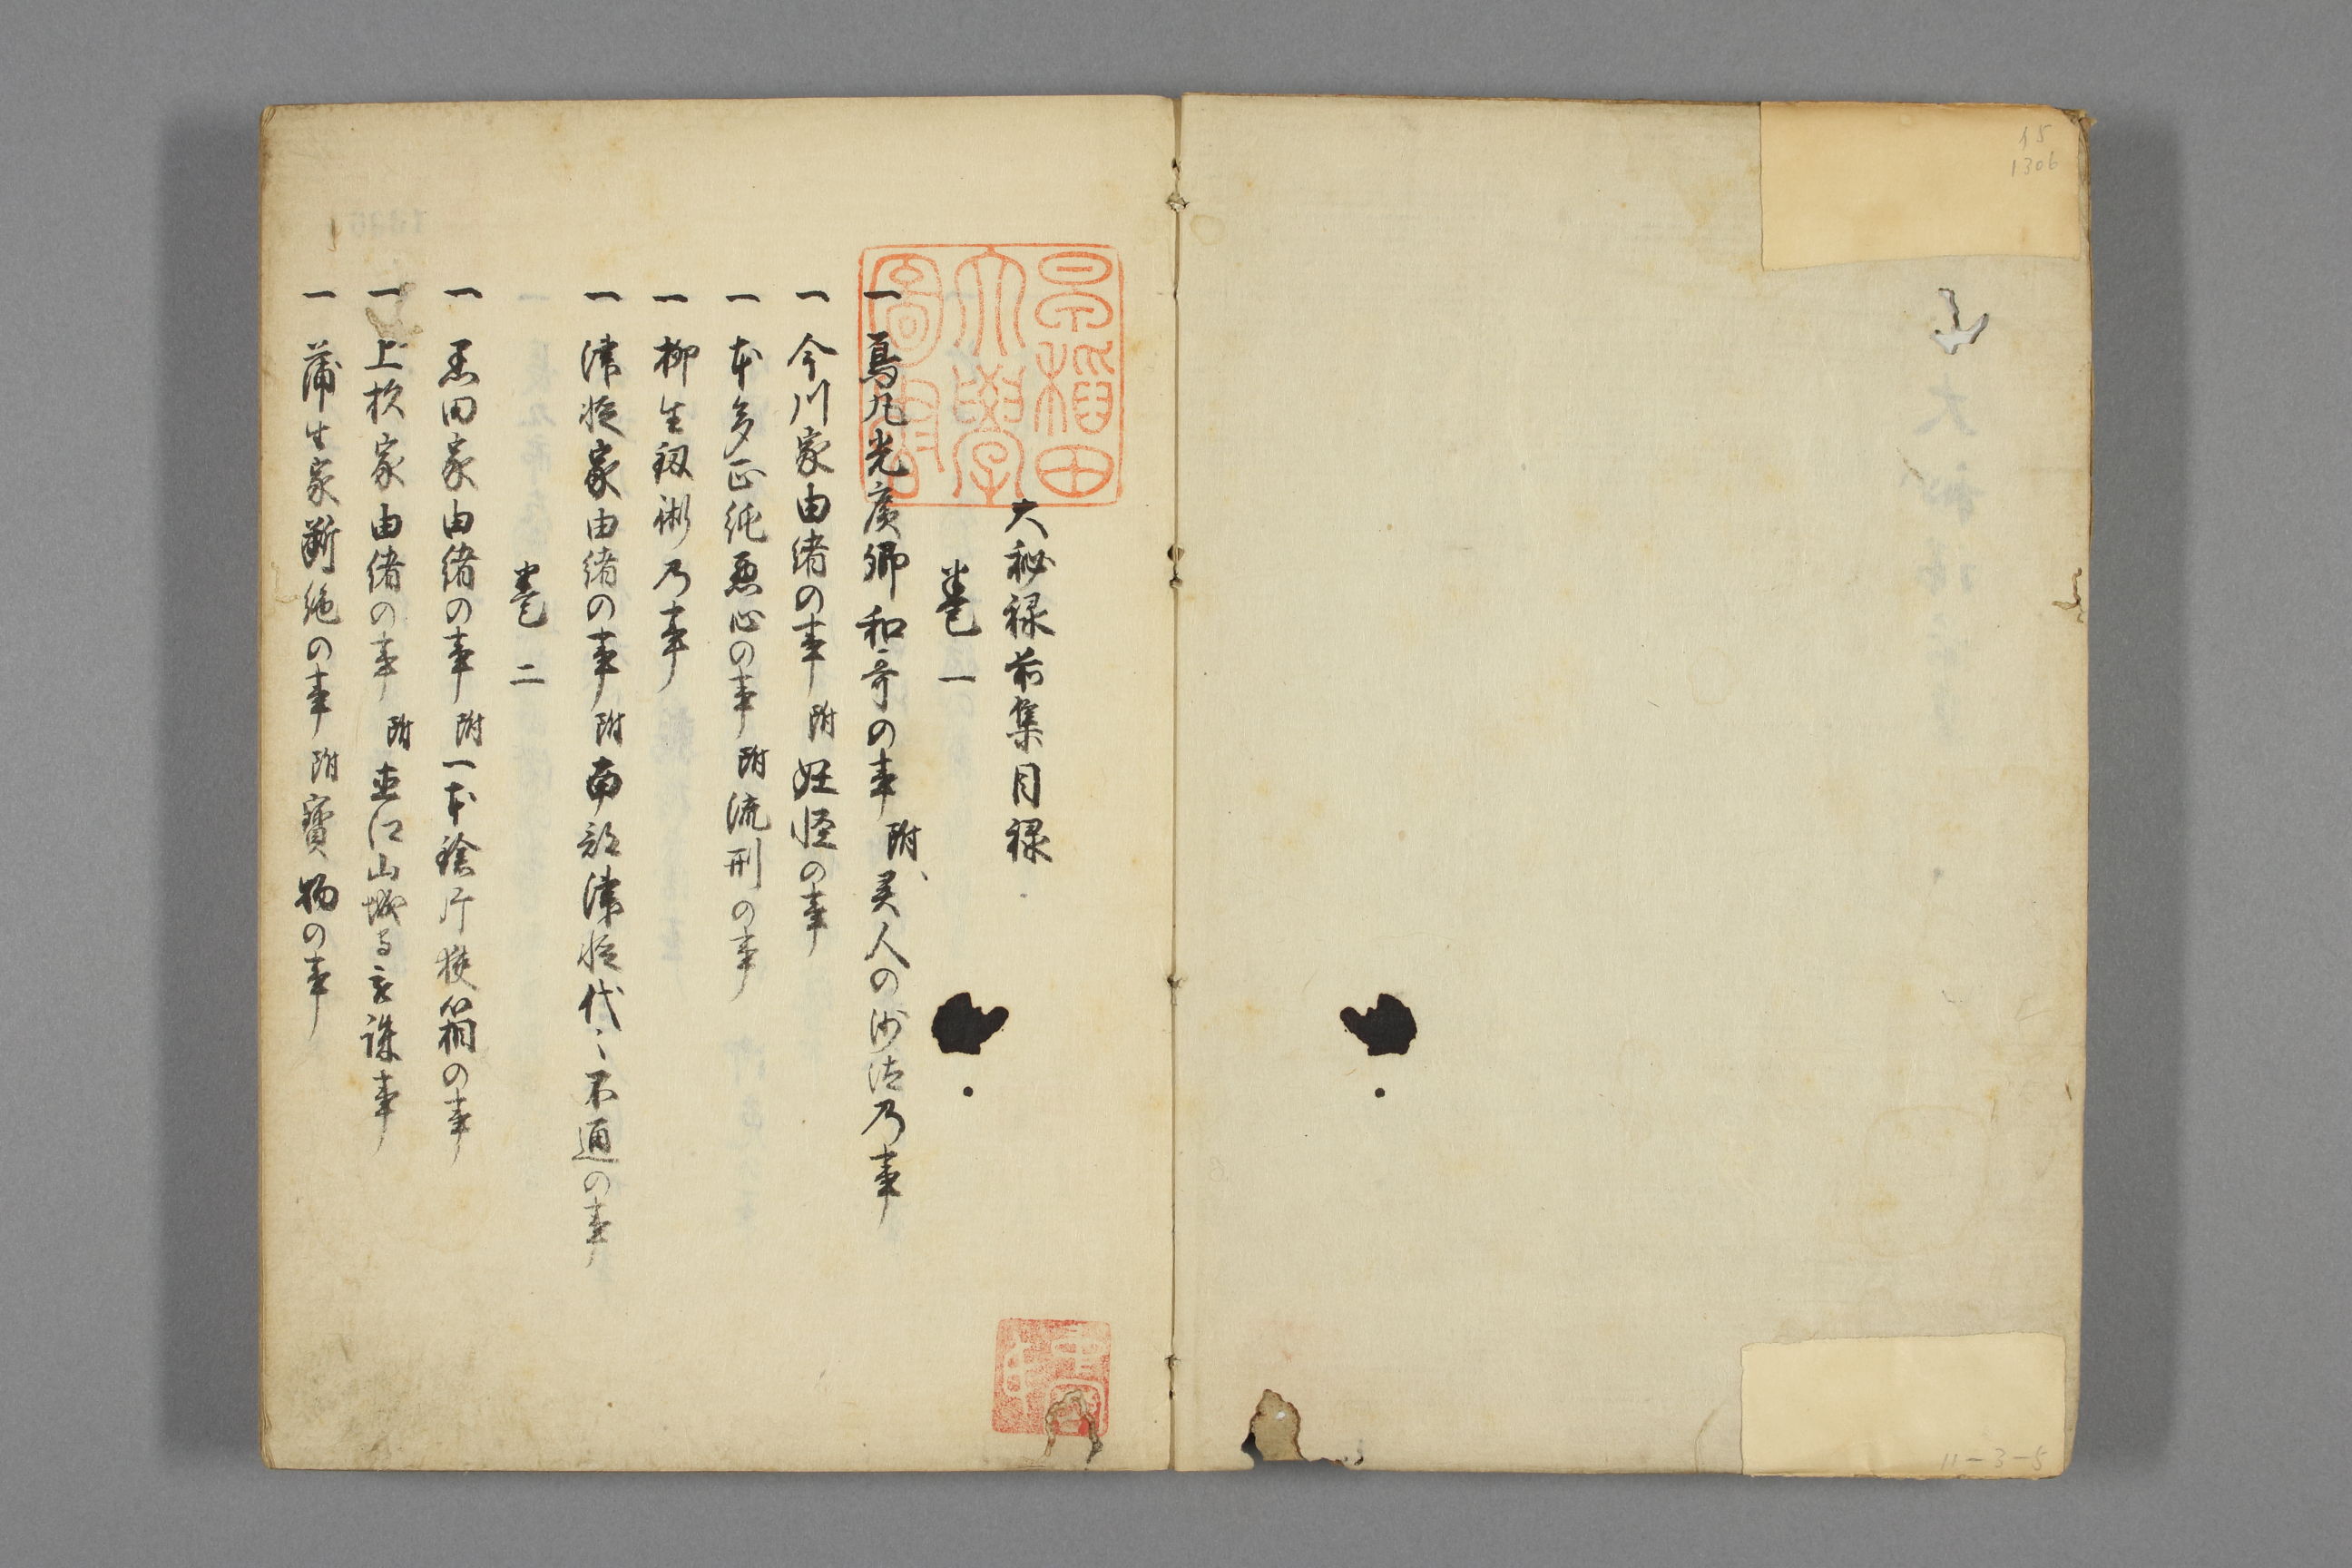 15
1306
11-3-5
早稲田
大學
圖書
大秘禄前集目禄
巻一
一 烏丸光廣卿和哥の事 附 美人の沙法乃事
一 今川家由緒の事 附 妖怪の事
一 本多正純悪心の事 附 流刑の事
一 柳生釼術乃事
一 津軽家由緒の事 附 南部津軽代々不通の事
巻二
一 黒田家由緒の事 附 一本鎗片挟箱の事
一 上杦家由緒の事 附 直江山城守被誅事
一 蒲生家断絶の事 附 寳物の事